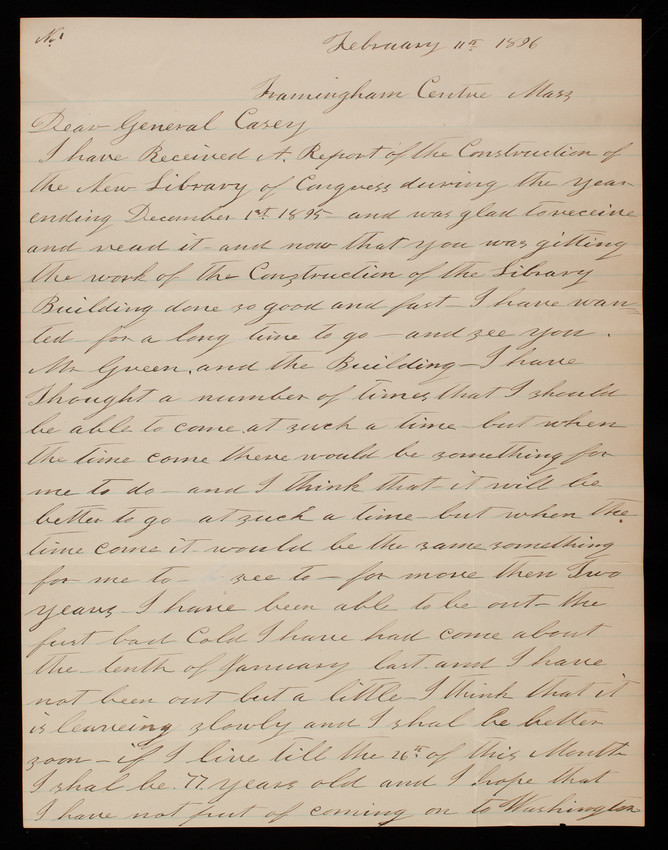 No 1
February 11th 1896
Framingham Centre Mass
Dear General Casey
I have Received A. Report of the Construction of
the New Library of Congress during the year
ending December 1st. 1895 - and was glad to receive
and read it - and now that you was gitting
the work of the Construction of the Library
Building done so good and fast - I have wan-
ted for a long time to go - and see you.
Mr Green, and the Building - I have
Thought a number of times that I should
be able to come at such a time but when
the time come there would be something for
me to do - and I think that it will be
better to go at such a time - but when the
time come it would be the same something
for me to - see to - for more then Two
years - I have been able to be out - the
furst bad Cold I have had come about
the tenth of January last and I have
not been out but a little - I think that it
is leaveing slowly and I shal be better
soon - if I live till the 26th of this Month
I shal be 77 years old and I hope that
I have not put of coming on to Washington